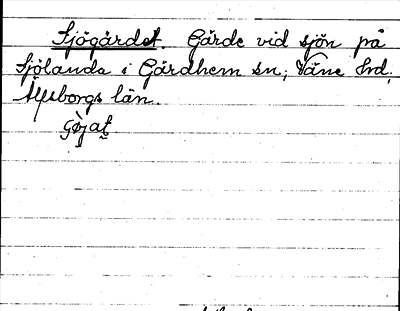 Sjögärdet. Gärde vid sjön på
Sjölanda i Gärdhem sn; Väne hd,
Älvsborgs län.